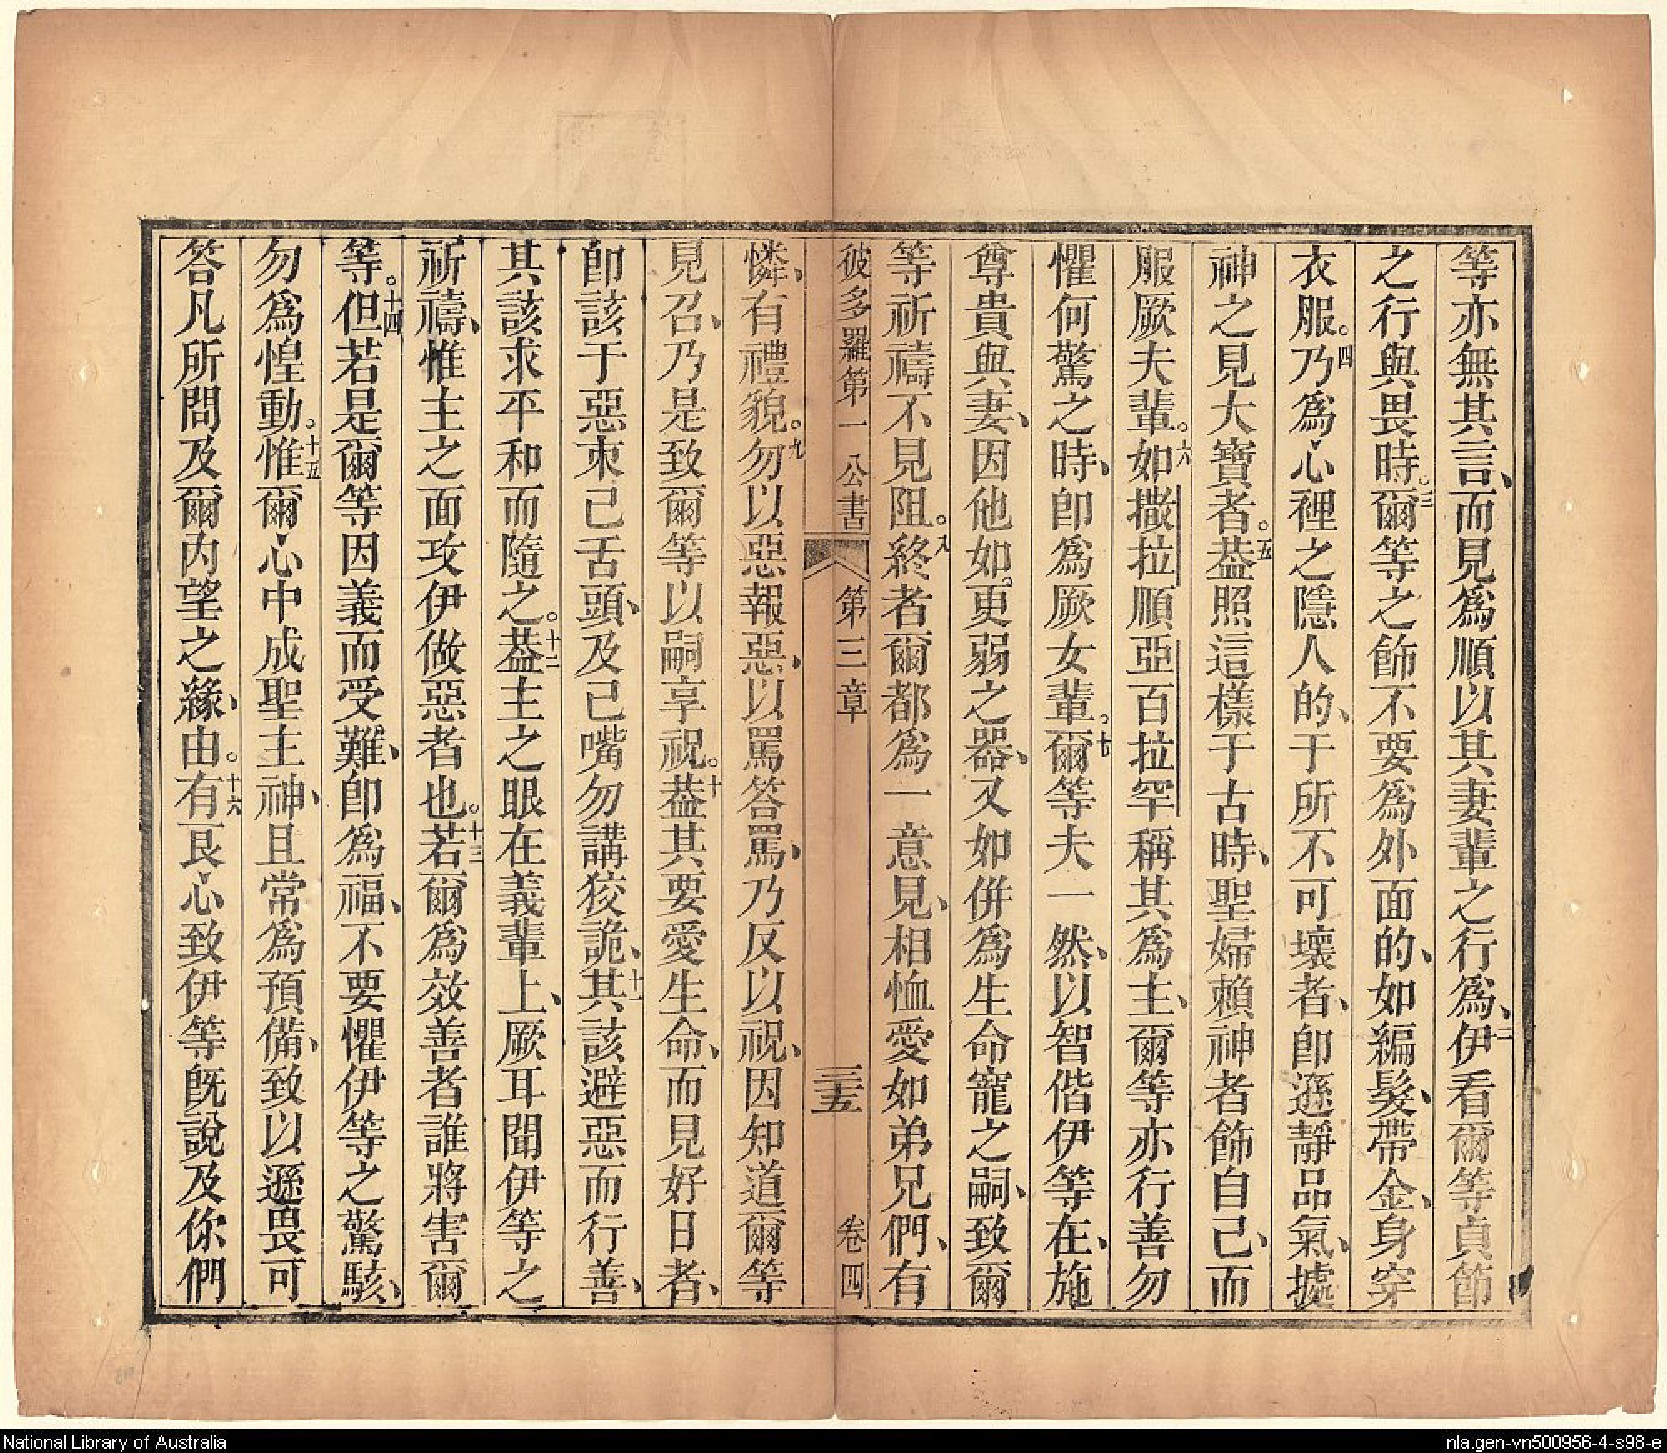 等亦無其言、而見爲順以其妻輩之行爲、二伊看爾等貞節
之行與畏時。三爾等之飾不要爲外面的、如編髮、帶金、身穿
衣服。四乃爲心裡之隱人的、于所不可壞者、卽遜靜品氣、㨿
神之見大寶者。五葢照這樣于古時、聖婦賴神者飾自己、而
服厥夫輩。六如撒拉順亞百拉罕稱其爲主、爾等亦行善勿
懼何驚之時、卽爲厥女輩。七爾等夫一然、以智偕伊等在、施
尊貴與妻、因他如更弱之器、又如併爲生命寵之嗣、致爾
等祈禱不見阻。八終者爾都爲一意見、相恤愛如弟兄們、有
彼多羅第一公書 第三章 三五 卷四
憐、有禮貌。九勿以惡報惡、以罵答罵、乃反以祝、因知道爾等
見召、乃是致爾等以嗣享祝。十葢其要愛生命、而見好日者、
卽該于惡朿己舌頭、及己嘴勿講狡詭、十一其該避惡而行善、
其該求平和而隨之。十二葢主之眼在義輩上、厥耳聞伊等之
祈禱、惟主之面攻伊做惡者也。十三若爾爲效善者誰將害爾
等。十四但若是爾等因義而受難、卽爲福、不要懼伊等之驚駭、
勿爲惶動。十五惟爾心中成聖主神、且常爲預備、致以遜畏可
答凡所問及爾內望之緣、由。十六有艮心致伊等旣說及你們